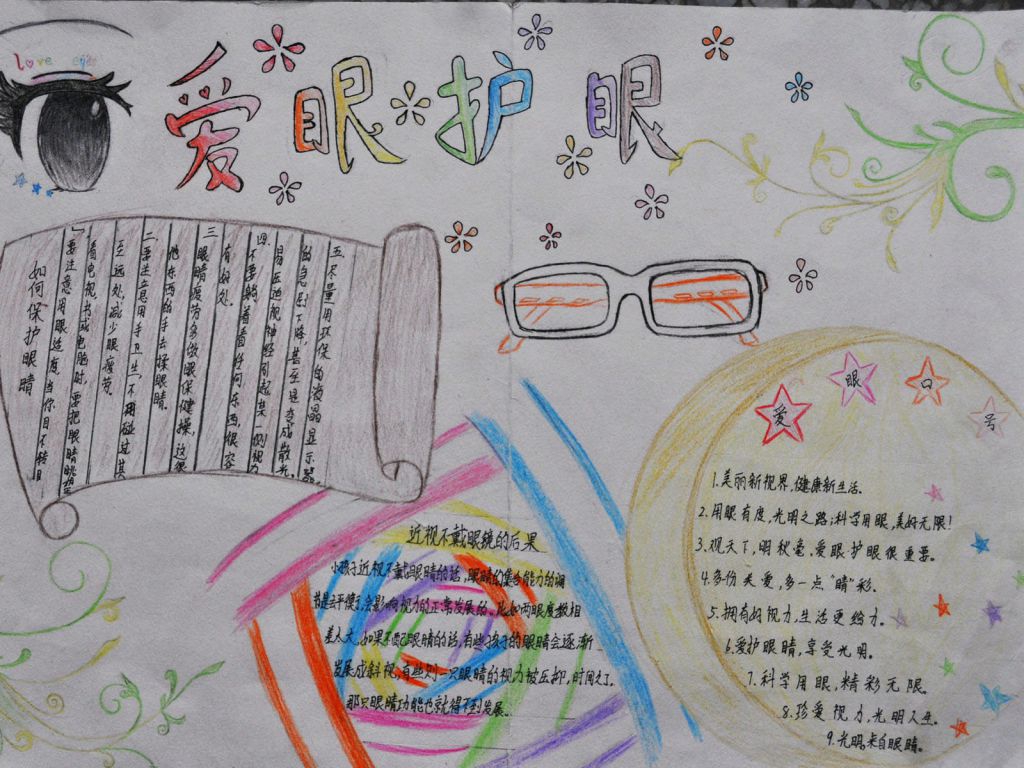 love eyes
爱眼护眼
如何保护眼睛
一.要注意用眼适度,当你目不转睛
看电视、书或电脑时,要把眼睛眺望
至远处,减少眼疲劳。
二.要注意用手卫生,不用碰过其
他东西的手去揉眼睛。
三.眼睛疲劳多做眼保健操,这很
有好处。
四.不要躺着看任何东西,很容
易压迫视神经引起某一侧视力
的急剧下降,甚至是变成散光。
五.尽量用环保的液晶显示器。
近视不戴眼镜的后果
小孩子近视不戴眼睛的话,眼睛的集合能力的调
节是去平衡了,会影响视力的正常发展的。比如两眼度数相
差太大,如果不配眼睛的话,有些孩子的眼睛会逐渐
发展成斜视;有些则一只眼睛的视力被压抑,时间久了,
那只眼睛功能也就得不到发展。
爱眼口号
1.美丽新视界,健康新生活。
2.用眼有度,光明之路;科学用眼,美好无限!
3.观天下,明秋毫,爱眼护眼很重要。
4.多份关爱,多一点“睛”彩。
5.拥有好视力,生活更给力。
6.爱护眼睛,享受光明。
7.科学用眼,精彩无限。
8.珍爱视力,光明人生。
9.光明,来自眼睛。